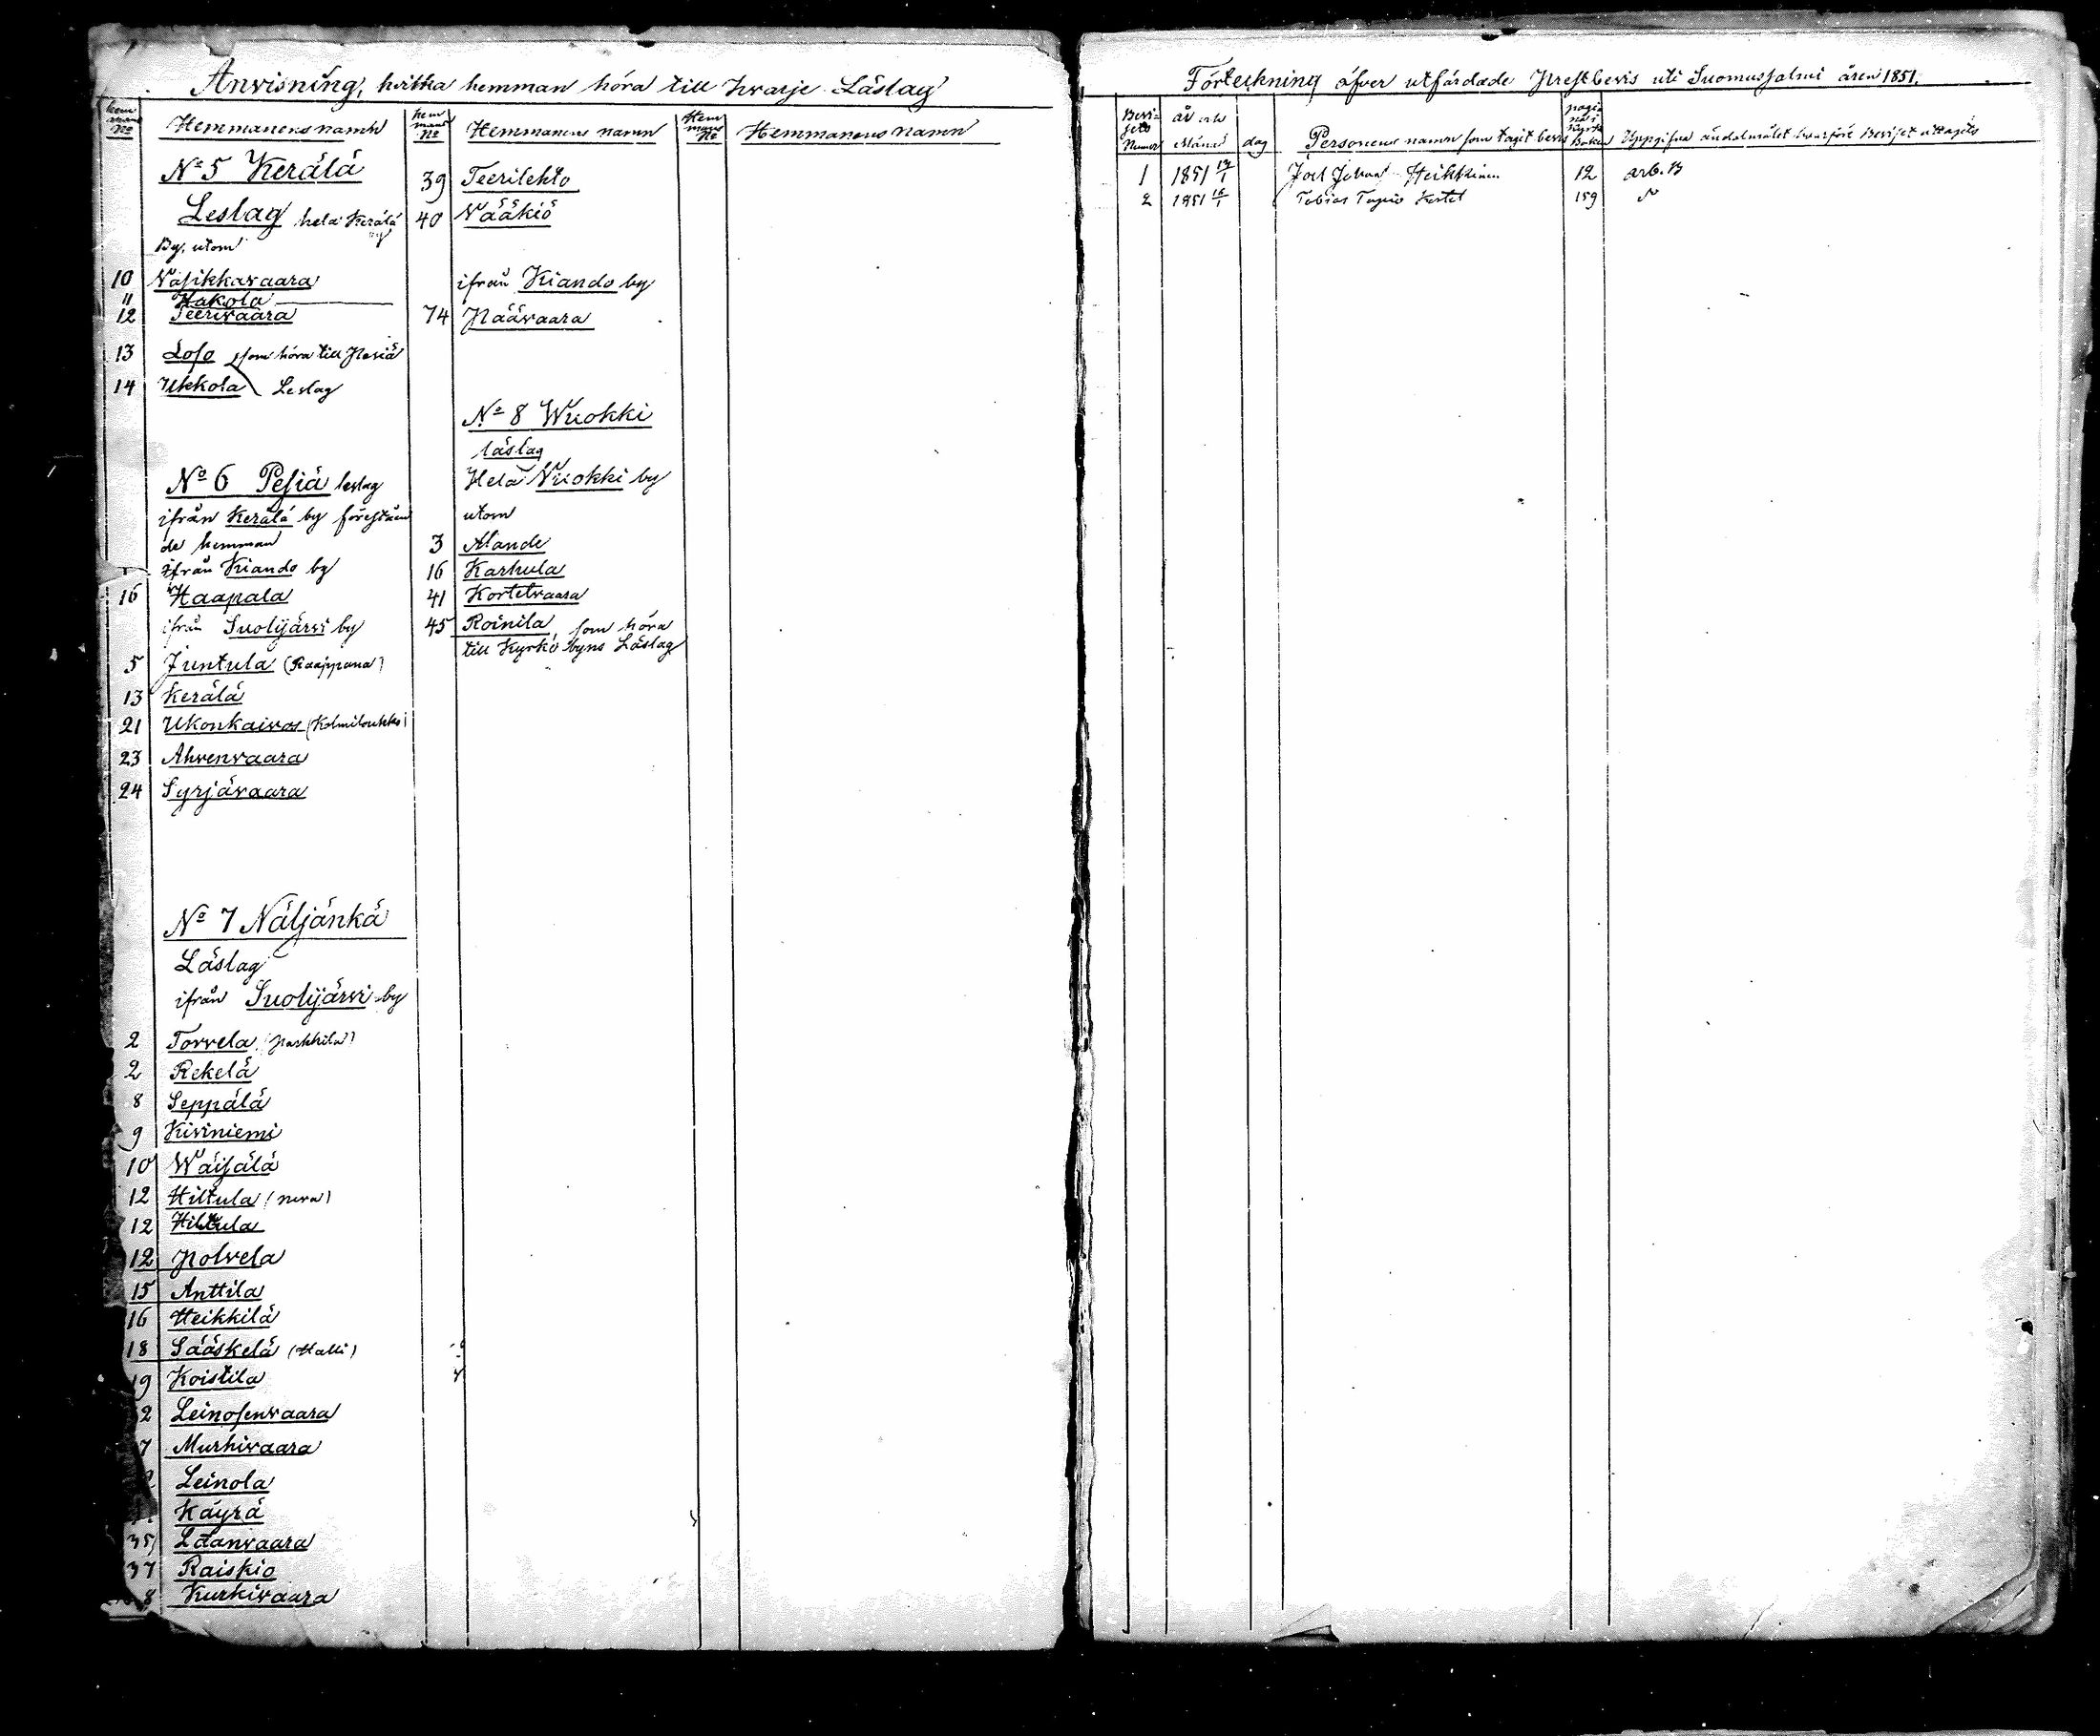 Anvisning, hvilka hemman höra till hvarje Läslag
Hemmans No
Hemmanens namn
No 5 Kerälä
Leslag hela Kerälä
By, utom
10 Näsikkavaara
11 Hakola
12 Teerivaara
13 Loso som höra till Pesiä
14 Ukkola Leslag
No 6 Pesiä leslag
ifrån Kerälä by föreståen
de hemman
ifrån Kiando by
16 Haapala
ifrån Suolijärvi by
5 Juntula (Raappana)
13 Kerälä
21 Ukonkaivos (Kolmiloukko)
23 Ahvenvaara
24 Syrjävaara
No 7 Näljänkä
Läslag
ifrån Suolijärvi by
2 Torvela (Parkkila)
2 Rekelä
8 Seppälä
9 Kiviniemi
10 Wäisälä
12 Hiltula (nera)
12 Hiltula
12 Polvela
15 Anttila
16 Heikkilä
18 Sääskelä (Halli)
19 Koistila
2 Leinosenvaara
7 Murhivaara
Leinola
Käyrä
35 Latanvaara
37 Raiskio
8 Kurkivaara
Hemmans No
Hemmanens namn
39 Teerilehto
40 Nääkiö
ifrån Kiando by
74 Päävaara
No 8 Wuokki
läslag
Hela Wuokki by
utom
3 Alande
16 Karhula
41 Kortetvaara
45 Roinila, som höra
till Kyrko byns Läslag
Hemmans No
Hemmanens namn
Förteckning öfver utfärdade Prestbevis uti Suomussalmi åren 1851.
Bevisets Numer
år och Månad
dag
Personens namn som tagit bevis
pagina i Kyrko Boken
Uppgifna ändamålet hvarföre Beviset uttagits
1 1851 Joel Johan Heikkinen 12 arb. B
2 1851 Tobias Tapio Kortet 159